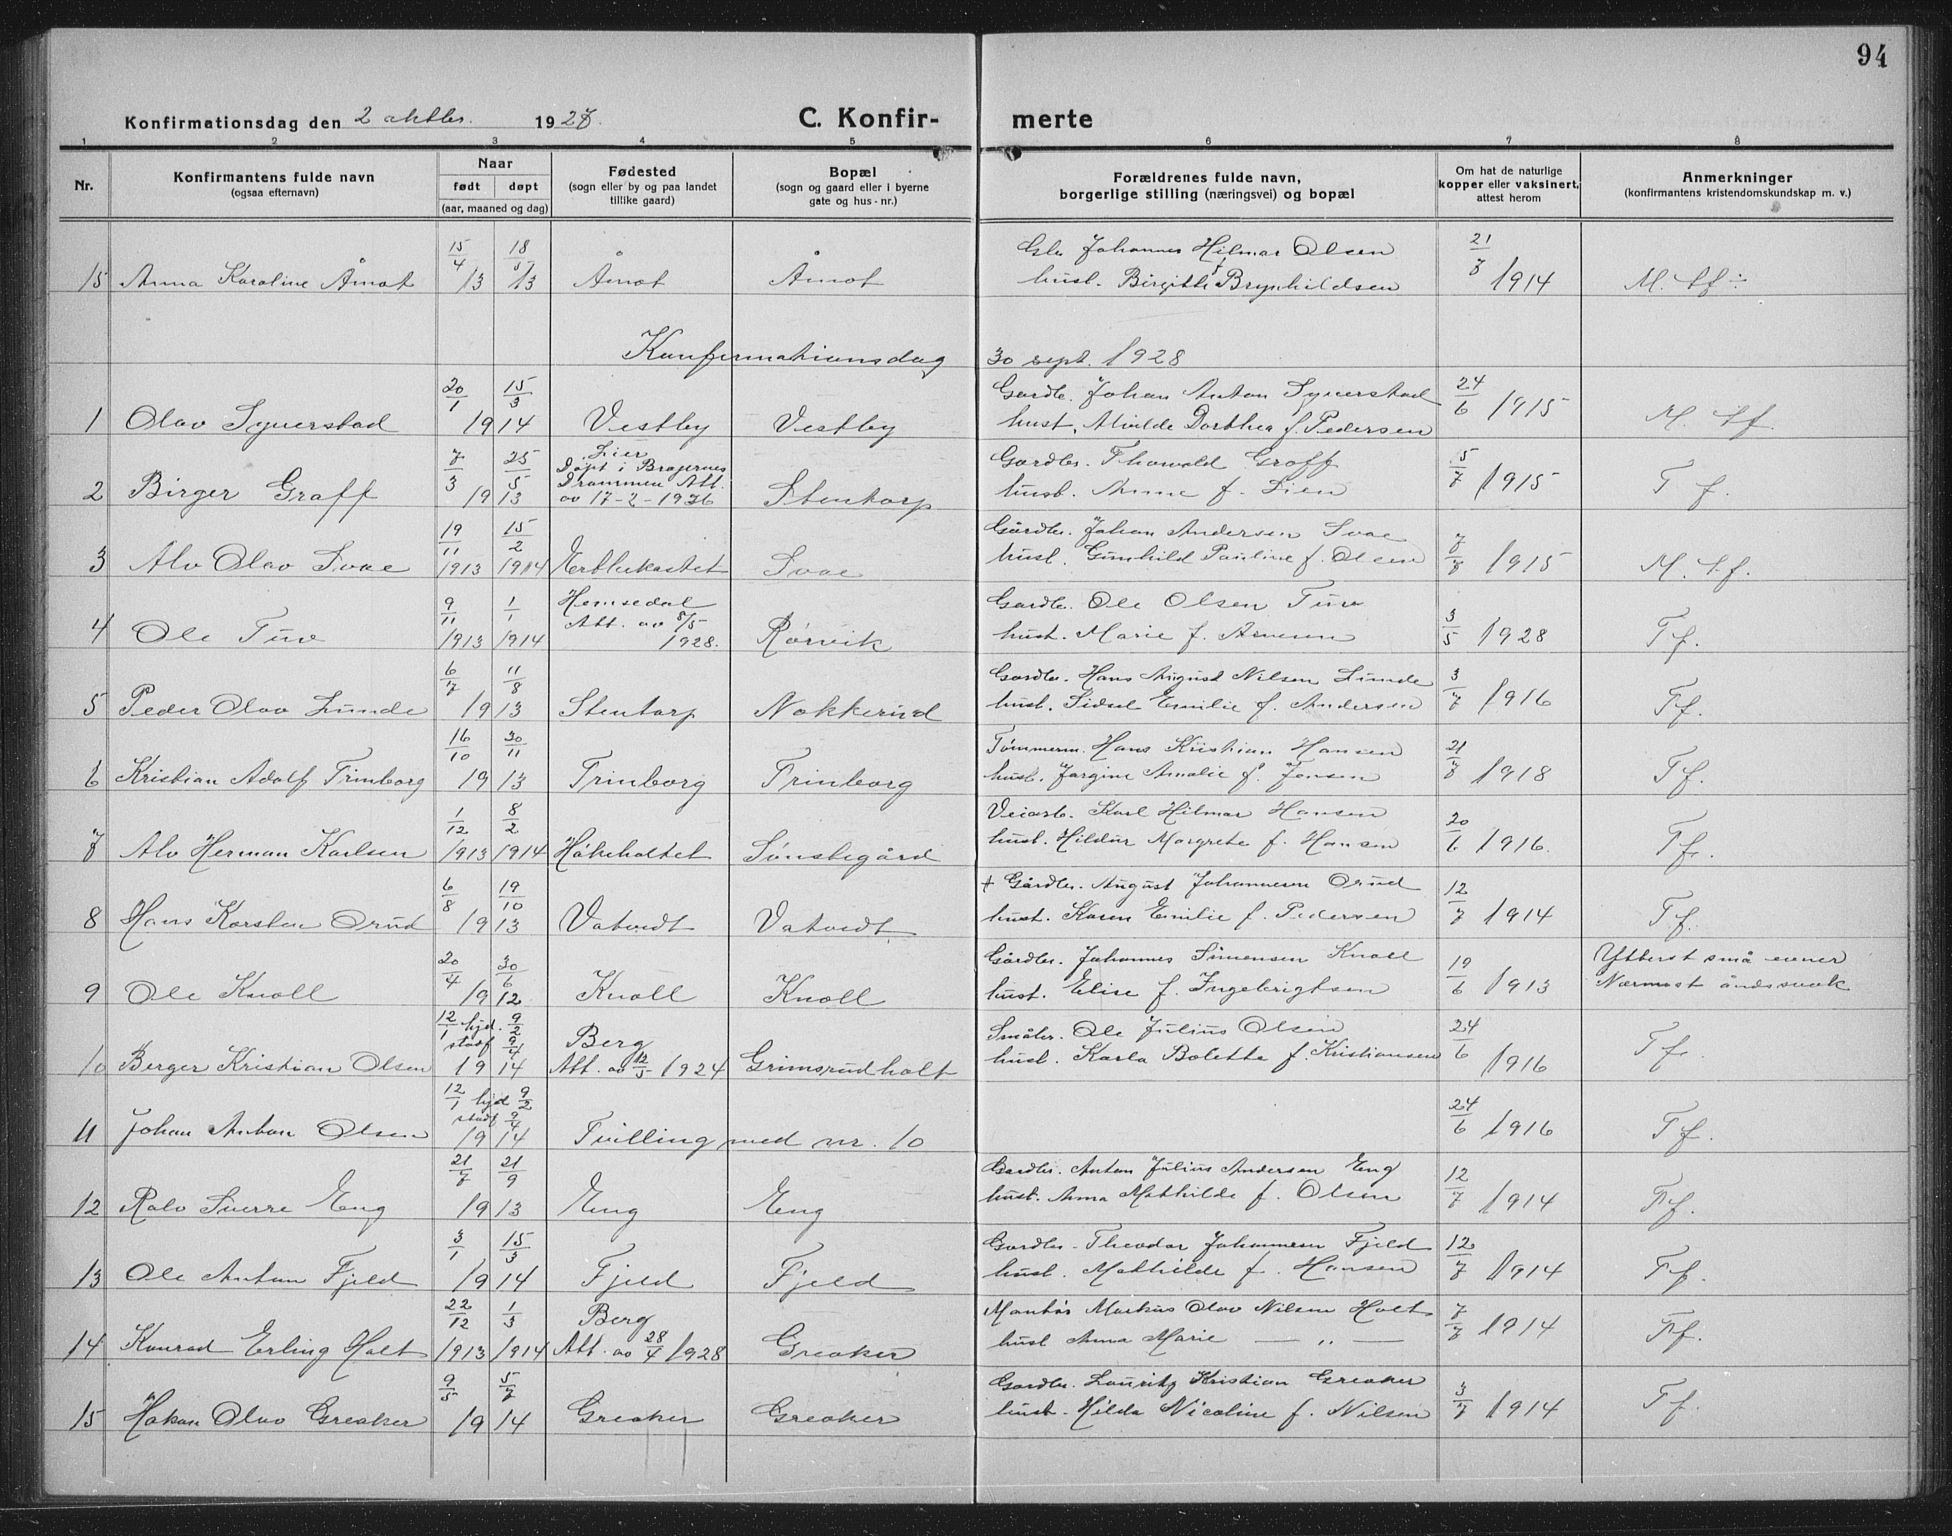 94
Konfirmationsdag den 2 oktbr. 1927. C. Konfir- merte
1 2 3 4 5 6 7 8
Nr. Konfirmantens fulde navn (ogsaa efternavn) Naar født døpt (aar, maaned og dag) Fødested (sogn eller by og paa landet tillike gaard) Bopæl (sogn og gaard eller i byerne gate og hus-nr.) Forældrenes fulde navn, borgerlige stilling (næringsvei) og bopæl Om hat de naturlige kopper eller vaksinert, attest herom Anmerkninger (konfirmantens kristendomskundskap m. v.)
15 Anna Karoline Åmot 15/4 13 18/5 13 Åmot Åmot Johannes Hilmar Olsen 21/7 1914 M. tf ÷
hust. Birgitte Brynhildsen
Konfirmationsdag 30 sept. 1928
1 Olav Syverstad 20/1 15/3 1914 Vestby Vestby Gårdbr. Johan Anton Syverstad 24/6 1915 M. tf.
hust. Alvilde Dorthea f. Pedersen
2 Birger Graff 7/3 25/5 1913 Lier Døpt i Bragernes Drammen Att. av 17-2-1926 Stentorp Gardbr. Thorvald Graff 5/7 1915 T f.
hust. Anne f. Lien
3 Alv Olav Svae 19/11 1913 15/2 1914 Ertlukastet Svae Gårdbr. Johan Andersen Svae 7/7 1915 M. tf.
hust. Gunhild Pauline f. Olsen
4 Ole Tuv 9/11 1913 1/1 1914 Hemsedal Att. av 8/5 1928. Rørvik Gardbr. Ole Olsen Tuv 3/5 1928 Tf.
hust. Marie f. Arnesen
5 Peder Olav Lunde 6/7 11/8 1913 Stentorp Nokkerud Gardbr. Hans August Nilsen Lunde 3/7 1916 Tf.
hust. Sidsel Emilie f. Andersen
6 Kristian Adolf Trinborg 16/10 30/11 1913 Trinborg Trinborg Tømmerm. Hans Kristian Hansen 21/7 1918 Tf.
hust. Jørgine Amalie f. Jensen
7 Alv Herman Karlsen 1/12 1913 8/2 1914 Håkeholtet Sønstegård Veiarb. Karl Hilmar Hansen 20/6 1916. Tf.
hust. Hildur Margrete f. Hansen
8 Hans Karsten Orud 6/8 19/10 1913 Vatvedt Vatvedt + Gårdbr. August Johannesen Orud 12/7 1914 Tf.
hust. Karen Emilie f. Pedersen
9 Ole Knoll 20/4 30/6 1912 Knoll Knoll Gårdbr. Johannes Simensen Knoll 19/6 1913 Ytterst små evner
hust. Elise f. Ingebrigtsen Nærmest åndssvak
10 Berger Kristian Olsen 12/1 hjd. 9/2 stadf 9/4 1914 Berg Att. av 12/5 1924 Grimsrudholt Småbr. Ole Julius Olsen 24/6 1916 Tf.
hust. Karla Bolette f. Kristiansen
11 Johan Anton Olsen 12/1 hjd 9/2 stadf 9/4 1914 Tvilling med nr. 10 24/6 1916 Tf.
12 Rolv Sverre Eng 21/7 21/9 1913 Eng Eng Gardbr. Anton Julius Andersen Eng 12/7 1914 Tf.
hust. Anna Mathilde f. Olsen
13 Ole Anton Fjeld 3/1 15/3 1914 Fjeld Fjeld Gardbr. Theodor Johannesen Fjeld 12/7 1914 Tf.
hust. Mathilde f. Hansen
14 Konrad Erling Holt 22/12 1913 1/3 1914 Berg Att. av 28/4 1928 Greaker Markus Olav Nilsen Holt 7/7 1914 Tf.
hust Anna Marie — „ —
15 Håkon Olav Greaker 9/5 5/7 1914 Greaker Greaker Gardbr. Lauritz Kristian Greaker 3/7 1914 Tf.
hust. Hilda Nicoline f. Nilsen